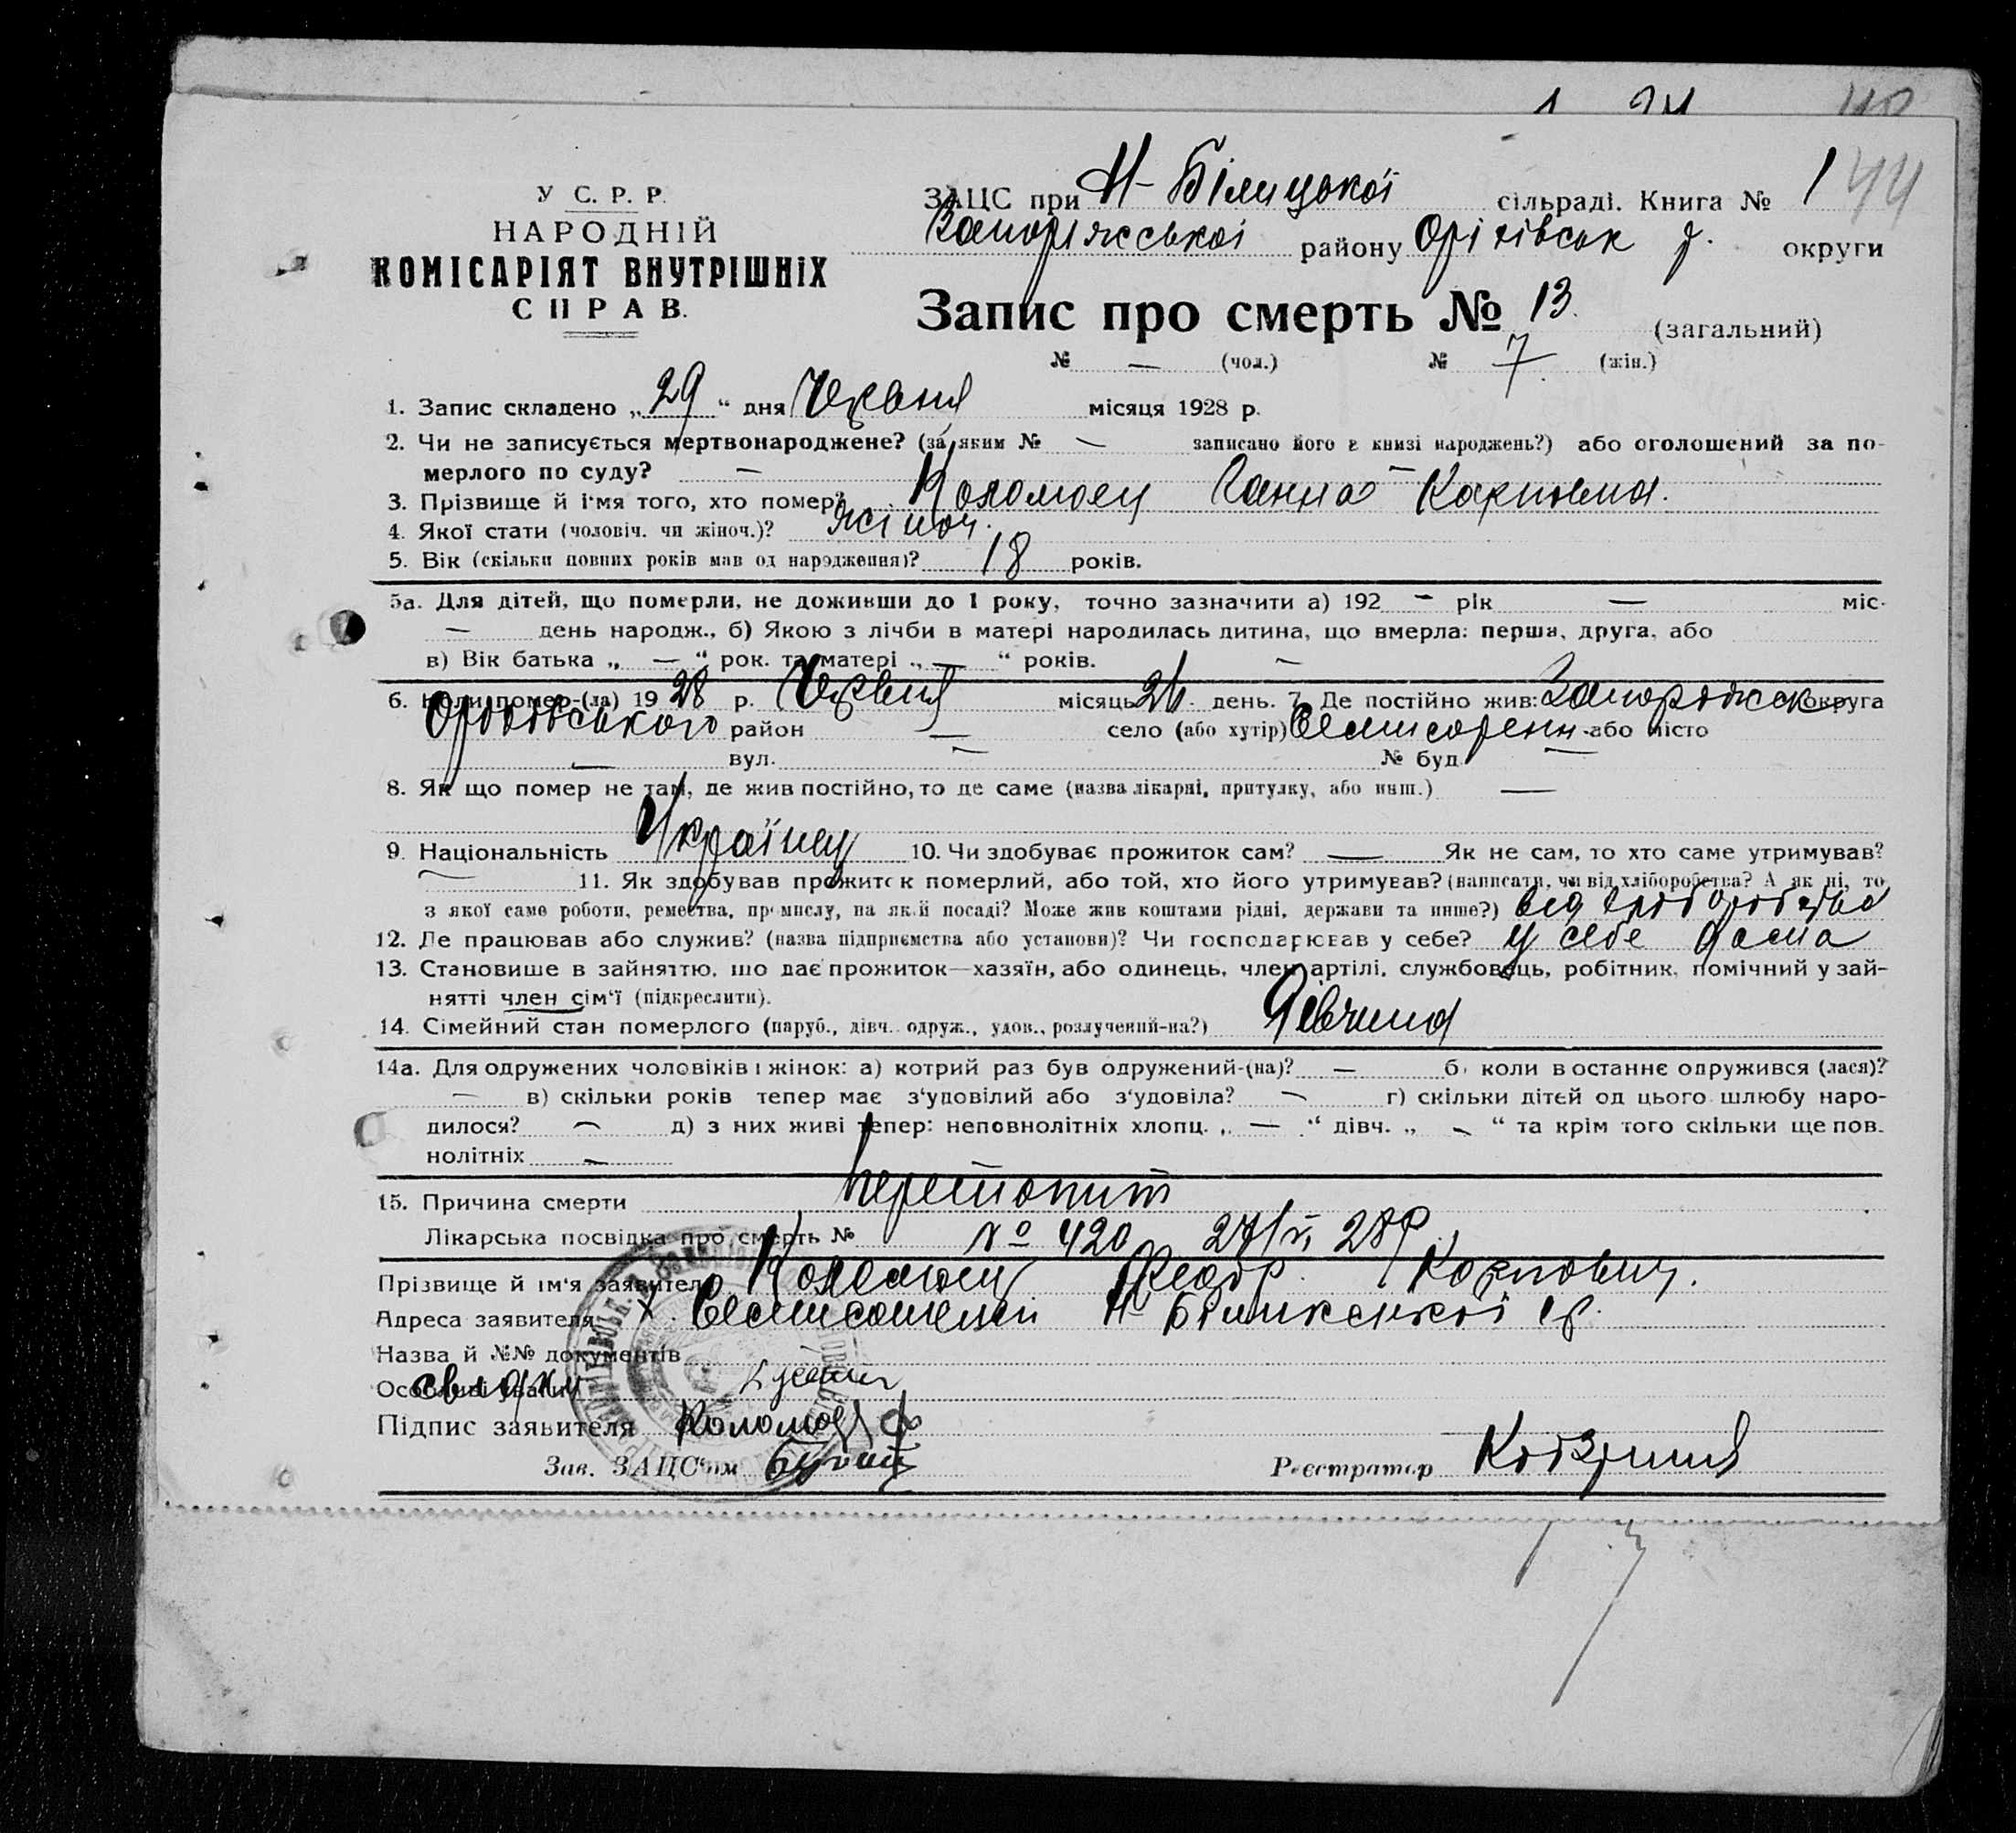 1 44
У С. Р. Р.
НАРОДНІЙ
КОМІСАРІЯТ ВНУТРІШНІХ
СПРАВ.
ЗАЦС при Н-Білицької сільраді. Книга № 1
Запоріжської району Оріхівськ р. округи
Запис про смерть № 13. (загальний)
№ — (чол.) № 7. (жін.)
1. Запис складено „29“ дня Червня місяця 1928 р.
2. Чи не записується мертвонароджене? (за яким № — записано його в книзі народжень?) або оголошений за по-
мерлого по суду? — —
3. Прізвище й ім'я того, хто помер? Коломоец Ганна Карповна.
4. Якої стати (чоловіч. чи жіноч.)? жіноч.
5. Вік (скільки повних років мав од народження)? 18 років.
5а. Для дітей, що померли, не доживши до 1 року, точно зазначити а) 192 — рік — міс.
— день народж., б) Якою з лічби в матері народилась дитина, що вмерла: перша, друга, або
в) Вік батька „ — “ рок. та матері „ — “ років. —
6. Коли помер-(ла) 1928 р. Червня місяць 26. день. 7. Де постійно жив: Запоріжськ округа
Оріхівського район — село (або хутір) або місто
— вул. — № буд. —
8. Як що помер не там, де жив постійно, то де саме (назва лікарні, притулку, або инш.) —
9. Національність Українец 10. Чи здобував прожиток сам? — Як не сам, то хто саме утримував?
— 11. Як здобував прожиток померлий, або той, хто його утримував? (написати, чи від хліборобства? А як ні, то
з якої саме роботи, ремества, промислу, на якій посаді? Може жив коштами рідні, держави та инше?) від хліборобства
12. Де працював або служив? (назва підприємства або установи)? Чи господарював у себе? у себе дома
13. Становище в зайняттю, що дає прожиток—хазяїн, або одинець, член артілі, службовець, робітник, помічний у зай-
нятті член сім'ї (підкреслити).
14. Сімейний стан померлого (паруб., дівч. одруж., удов., розлучений-на?) Дівчина
14а. Для одружених чоловіків і жінок: а) котрий раз був одружений-(на)? — б) коли в останнє одружився (лася)?
— в) скільки років тепер має з'уповілий або з'удовіла? — г) скільки дітей од цього шлюбу наро-
дилося? — д) з них живі тепер: неповнолітніх хлопц. „ — “ дівч. „ — “ та крім того скільки ще пов-
нолітніх —
15. Причина смерти перетонит
Лікарська посвідка про смерть № № 420 27/VI 28р.
Прізвище й ім'я заявителя Коломоец Федор Карпович.
Адреса заявителя х.
Назва й №№ документів
Особливі уваги
Підпис заявителя Коломоец Ф
Зав. ЗАЦС'ом Реєстратор